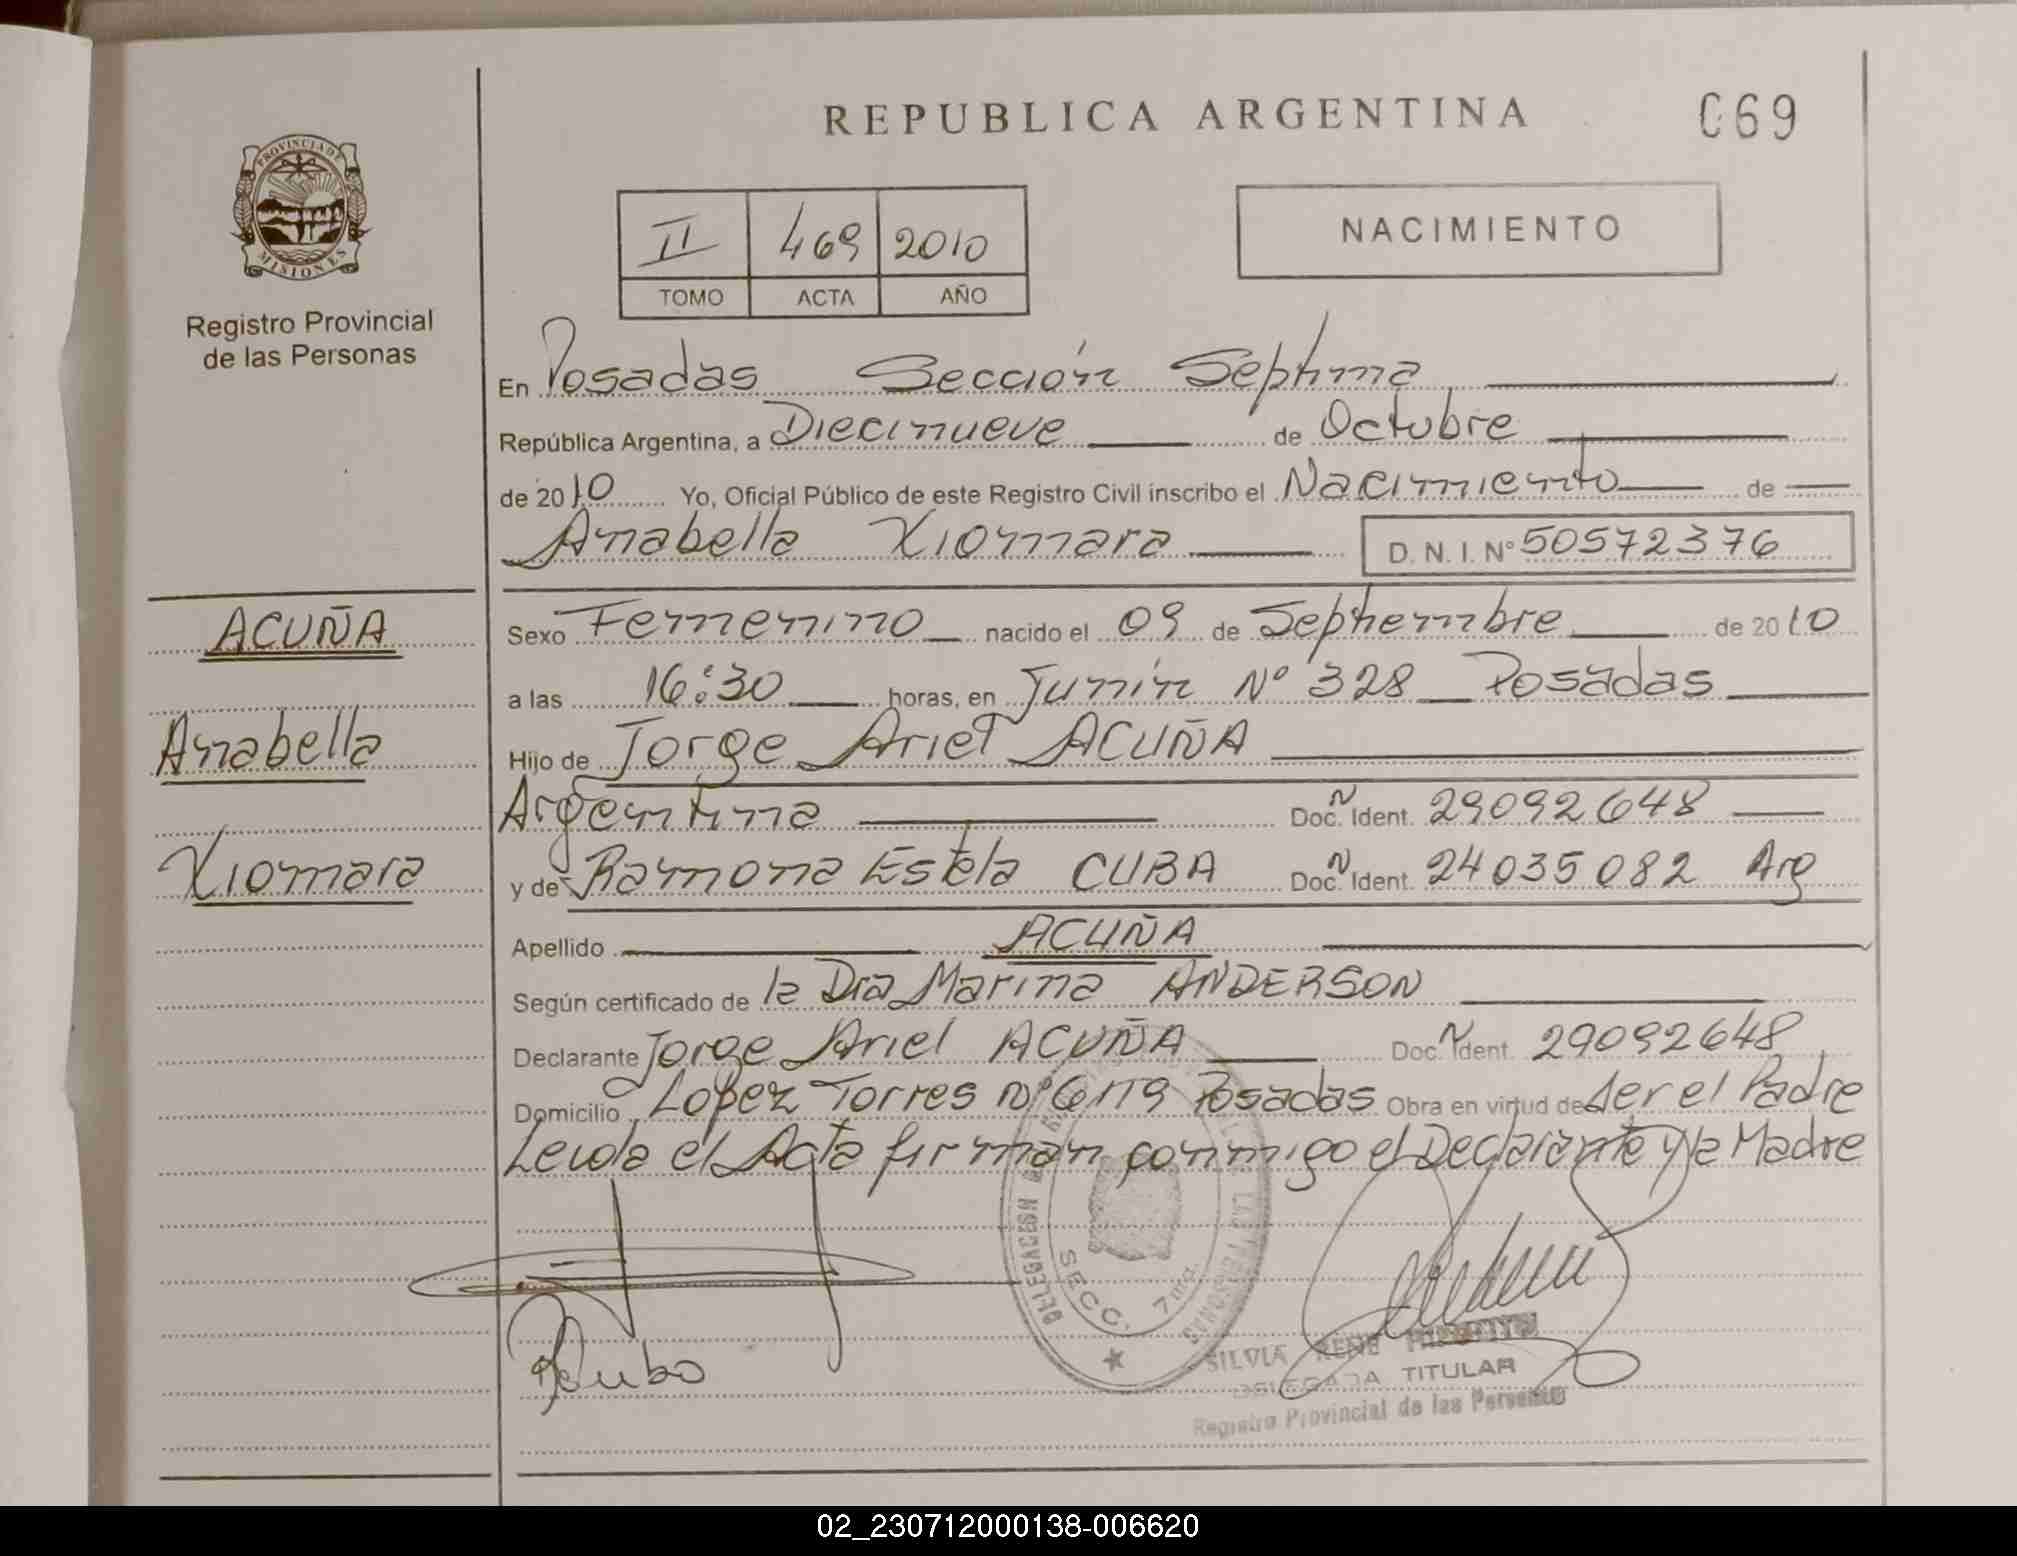 REPUBLICA ARGENTINA
C69
PROVINCIA DE
MISIONES
Registro Provincial
de las Personas
II 469 2010
TOMO ACTA AÑO
NACIMIENTO
En Posadas Sección Septima
República Argentina, a Diecinueve de Octubre
de 2010 Yo, Oficial Público de este Registro Civil inscribo el Nacimiento de
Anabella Xiomara D. N. I. N° 50572376
ACUÑA
Anabella
Xiomara
Sexo Femenino nacido el 09 de Septiembre de 2010
a las 16:30 horas, en Junín N° 328 Posadas
Hijo de Jorge Ariel ACUÑA
Argentina Doc. Ñ Ident. 29092648
y de Ramona Estela CUBA Doc. Ñ Ident. 24035082 Arg
Apellido ACUÑA
Según certificado de la Dra Marina ANDERSON
Declarante Jorge Ariel ACUÑA Doc. Ñ Ident. 29092648
Domicilio Lopez Torres n° 6119 Posadas Obra en virtud de ser el Padre
Leida el Acta firman conmigo el Declarante y la Madre
DELEGACION
LAS PERSONAS
SECC. 7ma.
SILVIA RENE
DELEGADA TITULAR
Registro Provincial de las Personas
02_230712000138-006620